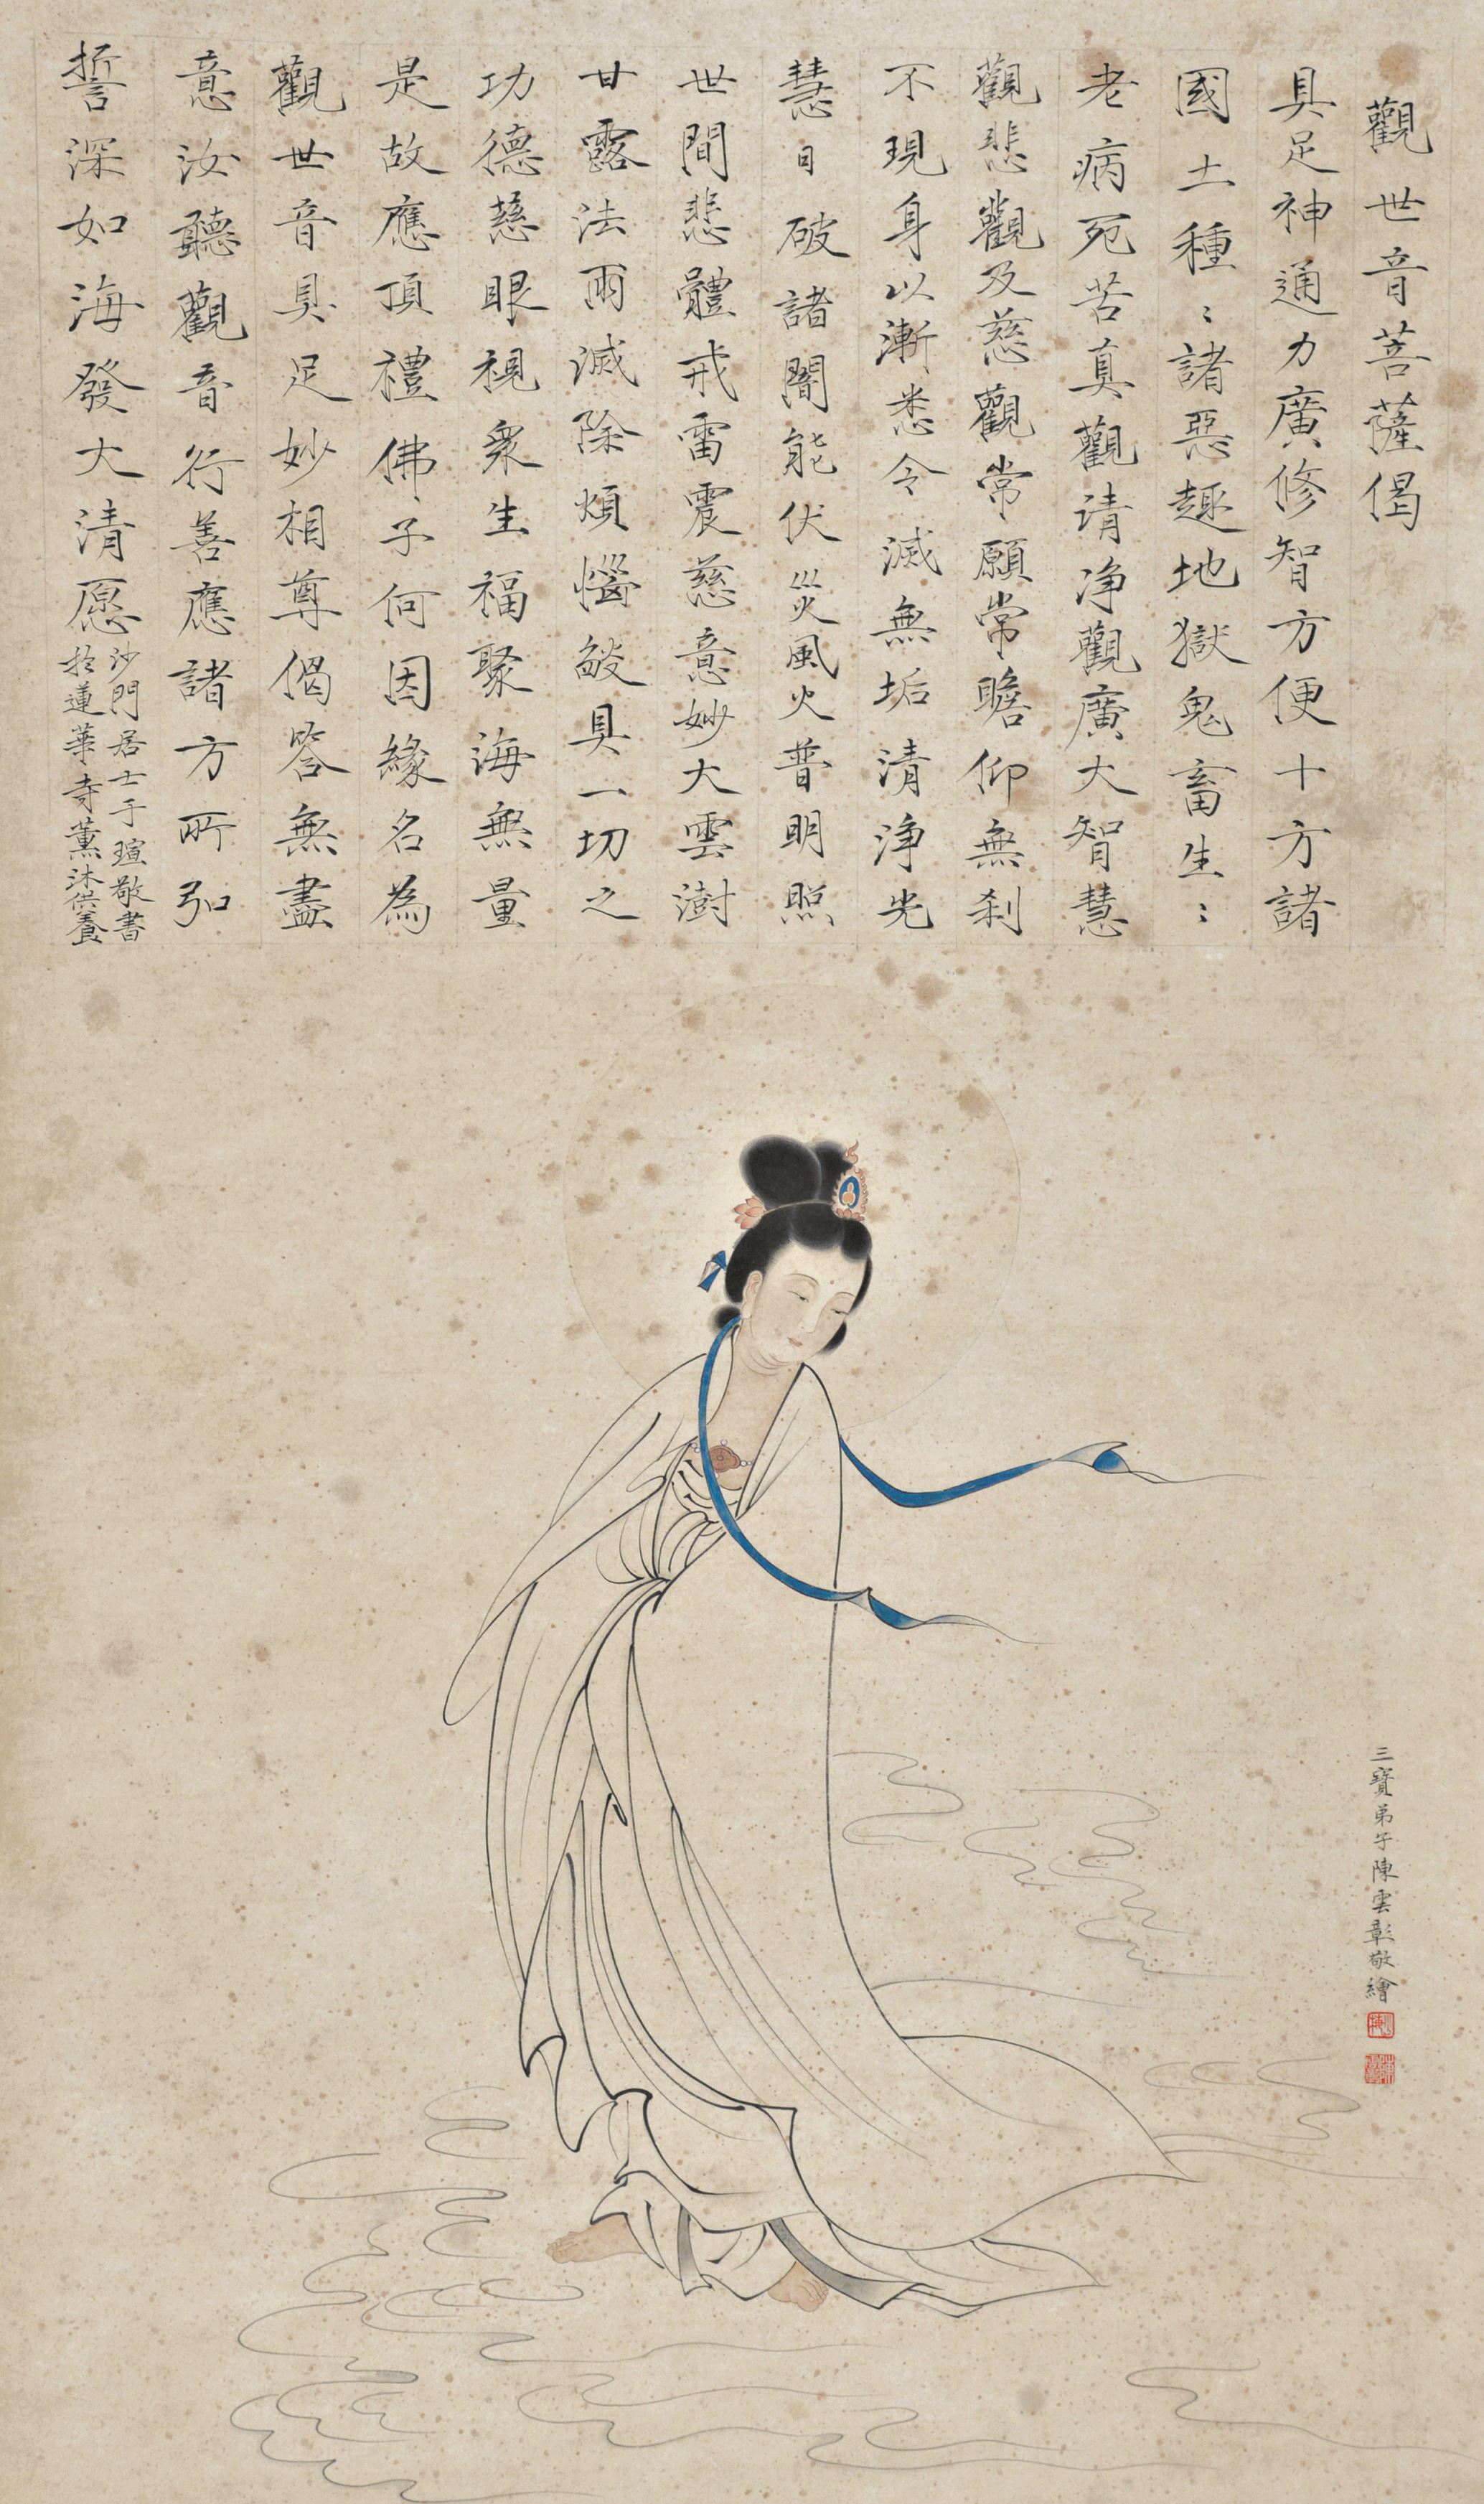 觀世音菩薩偈
具足神通力廣修智方便十方諸
國土種〻諸惡趣地獄鬼畜生〻
老病死苦真觀请净觀廣大智慧
觀悲觀及慈觀常願常瞻仰無刹
不現身以漸悉令滅無垢清淨光
慧日破諸闇能伏災風火普明照
世間悲體戒雷震慈意妙大雲澍
甘露法雨滅除煩惱皴具一切之
功德慈眼視衆生福聚海無量
是故應頂禮佛子何因緣名為
觀世音具足妙相尊偈答無盡
意汝聽觀音行善應諸方所弘
誓深如海發大清愿
沙門居士于瑄敬書
於蓮華寺薰沐供養
三寶弟子陳雲彰敬繪